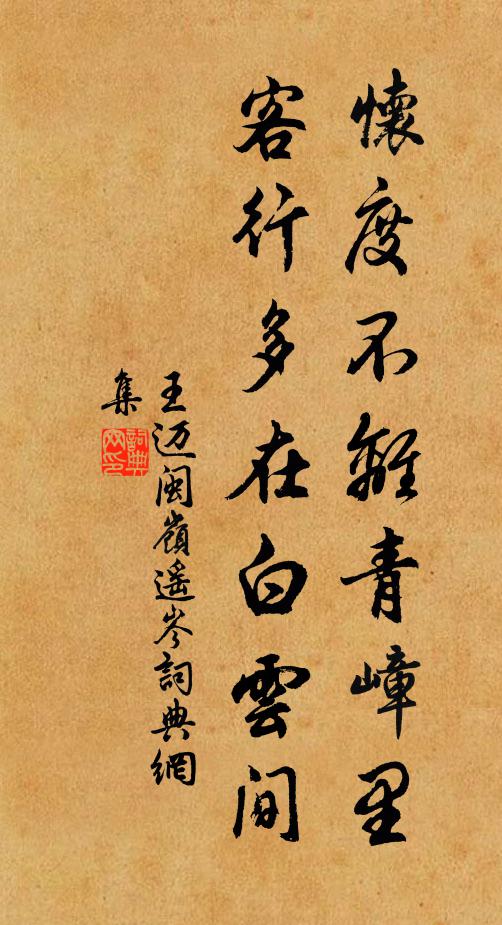 懷度不離青嶂里
客行多在白雲間
王迈閩嶺遥岑詞典網
集
詞典網印